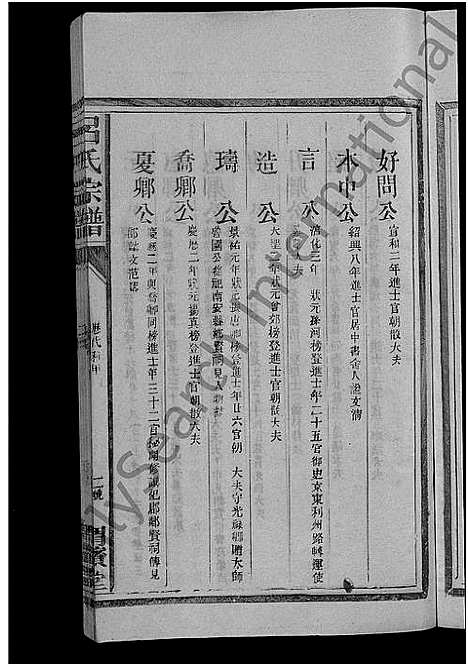 好問公 宣和二年進士官朝散大夫
本中公 紹興八年進士官居中書舍人諡文清
言公 淳化三年 狀元孫河榜登進士年二十五官御史京東利州路轉運使
大夫
造公 大聖二年狀元曾郊榜登進士官朝散大夫
璹公 景祐元年狀元張唐卿榜登進士年廿六官朝 大夫守光祿卿贈大師
喬卿公 慶曆二年狀元楊寘榜登進士官朝散大夫
夏卿公 慶曆二年與喬卿同榜進士年三十二官祕閣修撰祀郡鄉賢祠傳見
呂氏宗譜
歷代科甲
渭濱堂
MySearch International